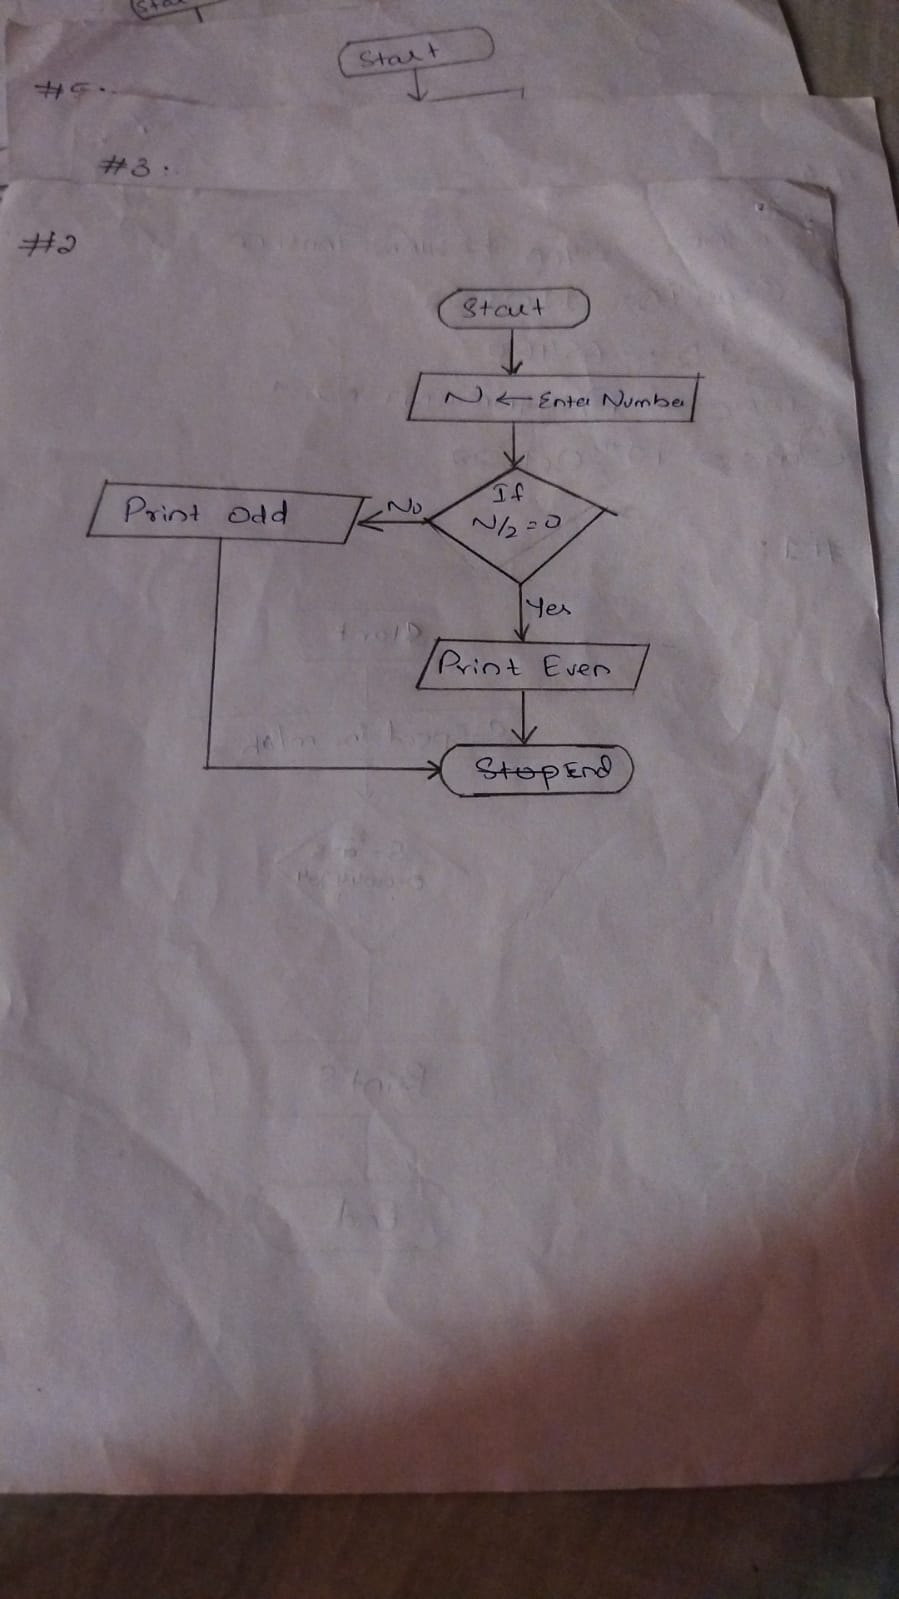 Start
#3.
#2
Start
N ← Enter Number
If
N/2 = 0
No
Print Odd
Yes
Print Even
Stop End